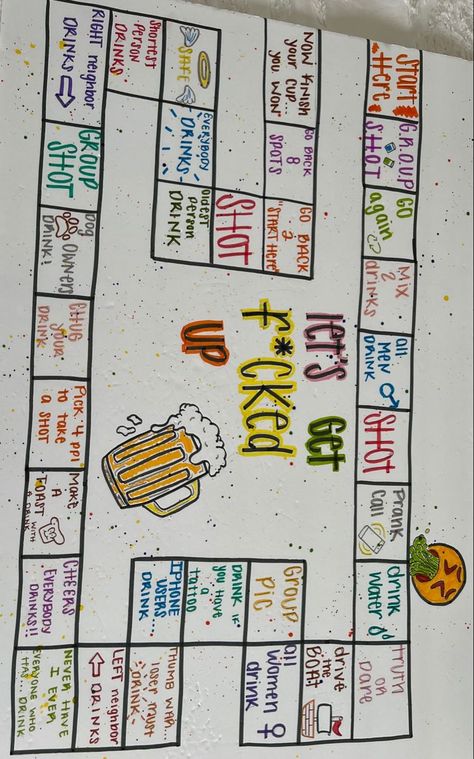 LET'S GET
F*CKED
UP
START
HERE
GROUP
SHOT
GO
again
MIX
2
drinks
all
MEN
DRINK
SHOT
Prank
Call
drink
water
truth
OR
Dare
drive
the
BOAT
all
women
drink
GROUP
PIC
DRINK IF
you HAVE
a
tattoo
IPHONE
USERS
DRINK
THUMB WAR...
loser must
DRINK
LEFT neighbor
DRINKS
NEVER HAVE
I EVER
EVERYONE WHO
HAS... DRINK
CHEERS
EVERYBODY
DRINKS!!
MAKE
A
TOAST WITH
A DRINK
PICK 4 PPl
to take
a SHOT
CHUG
your
DRINK
Dog
OWNERS
DRINK!
GROUP
SHOT
RIGHT neighbor
DRINKS
Shortest
Person
DRINKS
SAFE
EVERYBODY
DRINKS
Oldest
person
DRINK
SHOT
GO BACK
2
"START HERE"
GO BACK
8
SPOTS
NOW FINISH
your CUP..
you WON